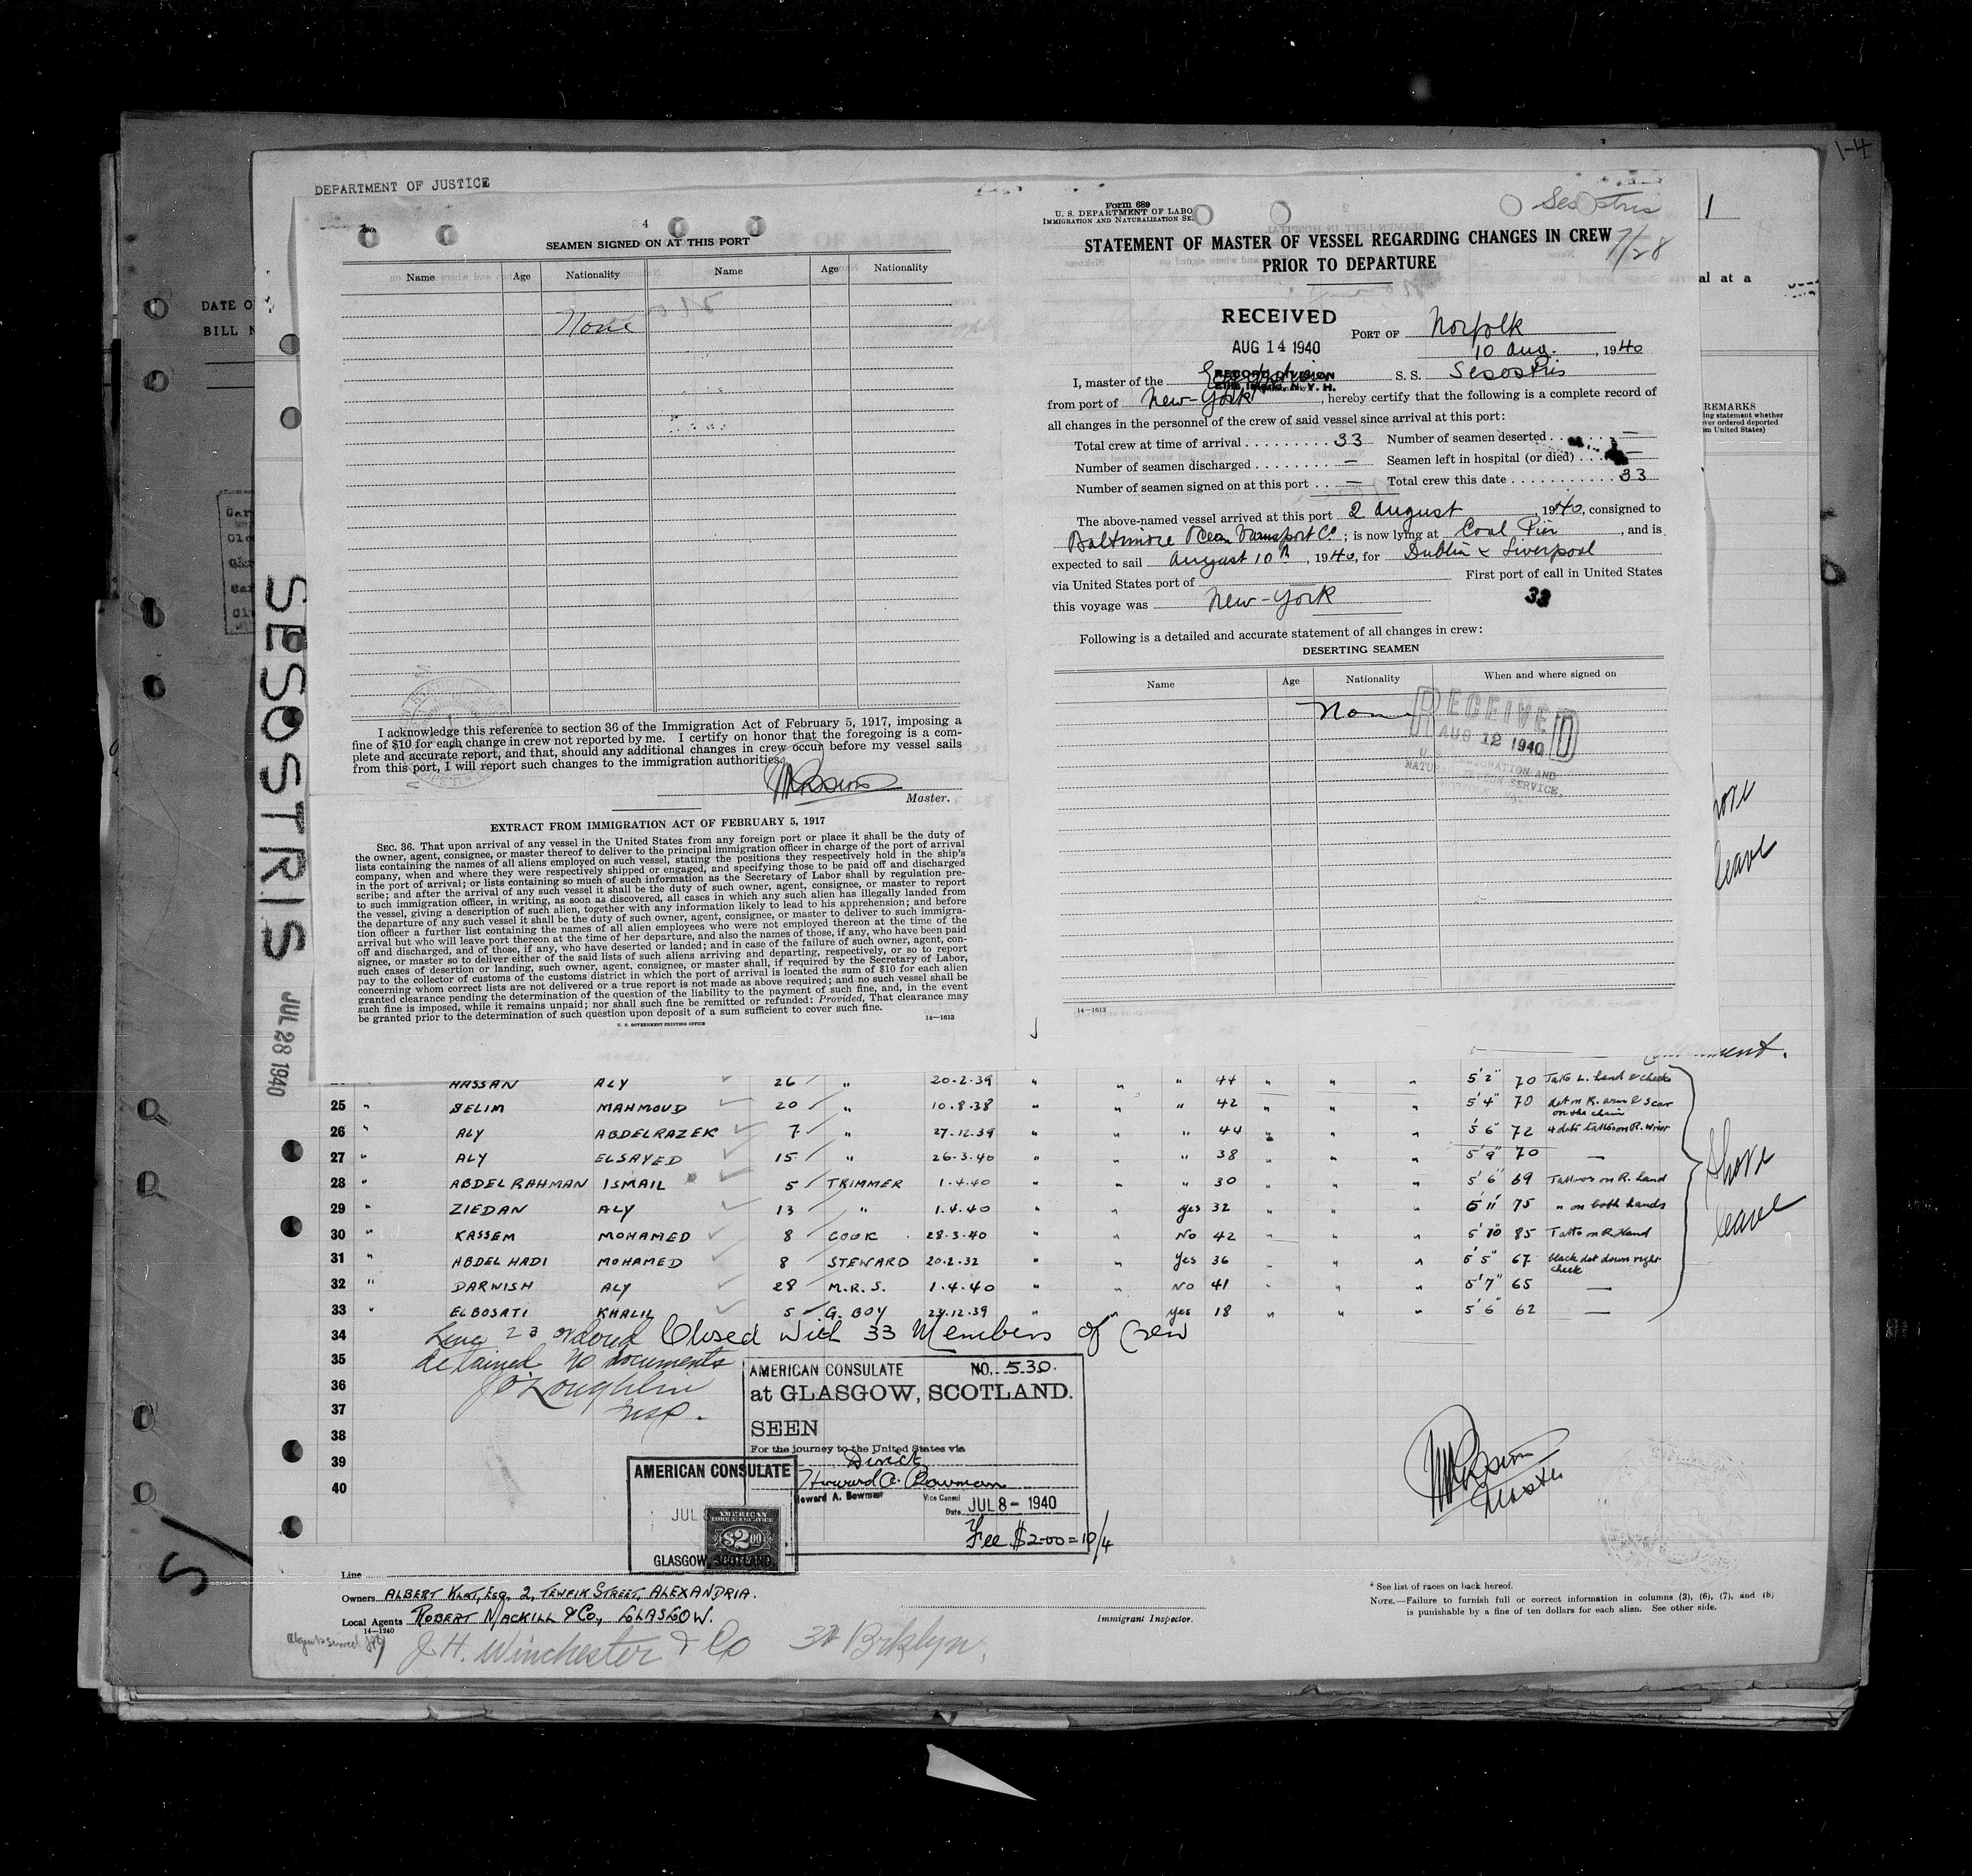 DEPARTMENT OF JUSTICE
1-4
DATE O
BILL N
SESOSTRIS
JUL 28 1940
4
SEAMEN SIGNED ON AT THIS PORT
Name Age Nationality Name Age Nationality
None
I acknowledge this reference to section 36 of the Immigration Act of February 5, 1917, imposing a
fine of $10 for each change in crew not reported by me. I certify on honor that the foregoing is a com-
plete and accurate report, and that, should any additional changes in crew occur before my vessel sails
from this port, I will report such changes to the immigration authorities.
Master.
EXTRACT FROM IMMIGRATION ACT OF FEBRUARY 5, 1917
SEC. 36. That upon arrival of any vessel in the United States from any foreign port or place it shall be the duty of
the owner, agent, consignee, or master thereof to deliver to the principal immigration officer in charge of the port of arrival
lists containing the names of all aliens employed on such vessel, stating the positions they respectively hold in the ship's
company, when and where they were respectively shipped or engaged, and specifying those to be paid off and discharged
in the port of arrival; or lists containing so much of such information as the Secretary of Labor shall by regulation pre-
scribe; and after the arrival of any such vessel it shall be the duty of such owner, agent, consignee, or master to report
to such immigration officer, in writing, as soon as discovered, all cases in which any such alien has illegally landed from
the vessel, giving a description of such alien, together with any information likely to lead to his apprehension; and before
the departure of any such vessel it shall be the duty of such owner, agent, consignee, or master to deliver to such immigra-
tion officer a further list containing the names of all alien employees who were not employed thereon at the time of the
arrival but who will leave port thereon at the time of her departure, and also the names of those, if any, who have been paid
off and discharged, and of those, if any, who have deserted or landed; and in case of the failure of such owner, agent, con-
signee, or master so to deliver either of the said lists of such aliens arriving and departing, respectively, or so to report
such cases of desertion or landing, such owner, agent, consignee, or master shall, if required by the Secretary of Labor,
pay to the collector of customs of the customs district in which the port of arrival is located the sum of $10 for each alien
concerning whom correct lists are not delivered or a true report is not made as above required; and no such vessel shall be
granted clearance pending the determination of the question of the liability to the payment of such fine, and, in the event
such fine is imposed, while it remains unpaid; nor shall such fine be remitted or refunded: Provided, That clearance may
be granted prior to the determination of such question upon deposit of a sum sufficient to cover such fine.
U. S. GOVERNMENT PRINTING OFFICE 14—1613
Form 689
U. S. DEPARTMENT OF LABO
IMMIGRATION AND NATURALIZATION SE
Sesostris
7/28
STATEMENT OF MASTER OF VESSEL REGARDING CHANGES IN CREW
PRIOR TO DEPARTURE
RECEIVED
AUG 14 1940
RECORD DIVISION
Ellis Island, N. Y. H.
PORT OF Norfolk
10 Aug. , 1940
I, master of the S. S. Sesostris
from port of New-York , hereby certify that the following is a complete record of
all changes in the personnel of the crew of said vessel since arrival at this port:
Total crew at time of arrival 33 Number of seamen deserted —
Number of seamen discharged — Seamen left in hospital (or died) —
Number of seamen signed on at this port — Total crew this date 33
The above-named vessel arrived at this port 2 August , 1940, consigned to
Baltimore Ocean Transport Co ; is now lying at Coal Pier , and is
expected to sail August 10th , 1940, for Dublin & Liverpool
via United States port of First port of call in United States
this voyage was New-York 33
Following is a detailed and accurate statement of all changes in crew:
DESERTING SEAMEN
Name Age Nationality When and where signed on
None
RECEIVED
AUG 12 1940
14—1613
al at a
REMARKS
ing statement whether
ever ordered deported
m United States)
hore
leave
HASSAN ALY 26 " 20-2-39 " " " 44 " " " 5'2" 70 Tatto L. hand & cheeks
25 " SELIM MAHMOUD 20 " 10.8.38 " " " 42 " " " 5'4" 70 dot on R. arm & scar on the chain
26 " ALY ABDELRAZEK 7 " 27.12.39 " " " 44 " " " 5'6" 72 4 dots tattoo on R. wrist
27 " ALY ELSAYED 15 " 26-3-40 " " " 38 " " " 5'9" 70 —
28 " ABDEL RAHMAN ISMAIL 5 TRIMMER 1.4.40 " " " 30 " " " 5'6" 69 Tattoos on R. hand
29 " ZIEDAN ALY 13 " 1.4.40 " " Yes 32 " " " 5'11" 75 " on both hands
30 " KASSEM MOHAMED 8 COOK 28-3-40 " " No 42 " " " 5'10" 85 Tatto on R. Hand
31 " ABDEL HADI MOHAMED 8 STEWARD 20-2-32 " " Yes 36 " " " 5'5" 67 black dot down right cheek
32 " DARWISH ALY 28 M.R.S. 1.4.40 " " No 41 " " " 5'7" 65 —
33 " ELBOSATI KHALIL 5 G. BOY 24.12.39 " " Yes 18 " " " 5'6" 62 —
Shore
leave
34 Line 23 ordered Closed with 33 Members of Crew
35 detained no documents
36 J O'Loughlin
37 Insp.
38
39
40
AMERICAN CONSULATE NO. 530.
at GLASGOW, SCOTLAND.
SEEN
For the journey to the United States via
Direct
Howard A. Bowman
Howard A. Bowman Vice Consul
Date JUL 8 - 1940
Fee $2.00 = 10/4
AMERICAN CONSULATE
JUL 8
AMERICAN
$2.00
GLASGOW, SCOTLAND.
Master
Line
Owners ALBERT KLAT, ESQ. 2, TEWFIK STREET, ALEXANDRIA.
Local Agents ROBERT MACKILL & CO., GLASGOW.
14—1240
J. H. Winchester & Co 31 Brklyn.
Immigrant Inspector.
* See list of races on back hereof.
NOTE.—Failure to furnish full or correct information in columns (3), (6), (7), and (8)
is punishable by a fine of ten dollars for each alien. See other side.